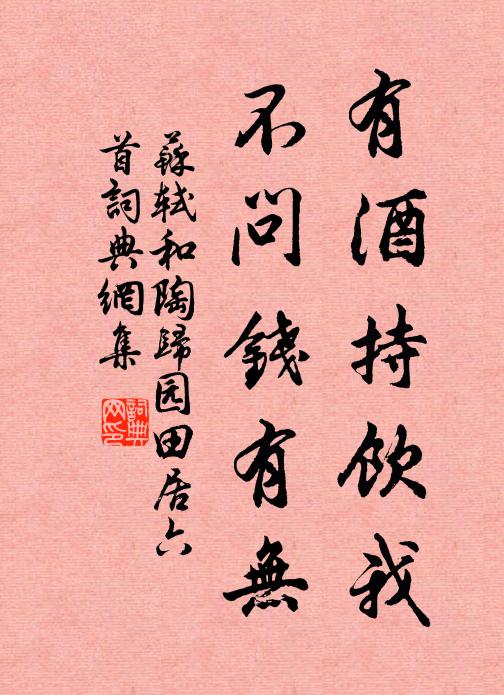 有酒持飲我
不問錢有無
蘇軾和陶歸园田居六
首詞典網集
詞典
网印